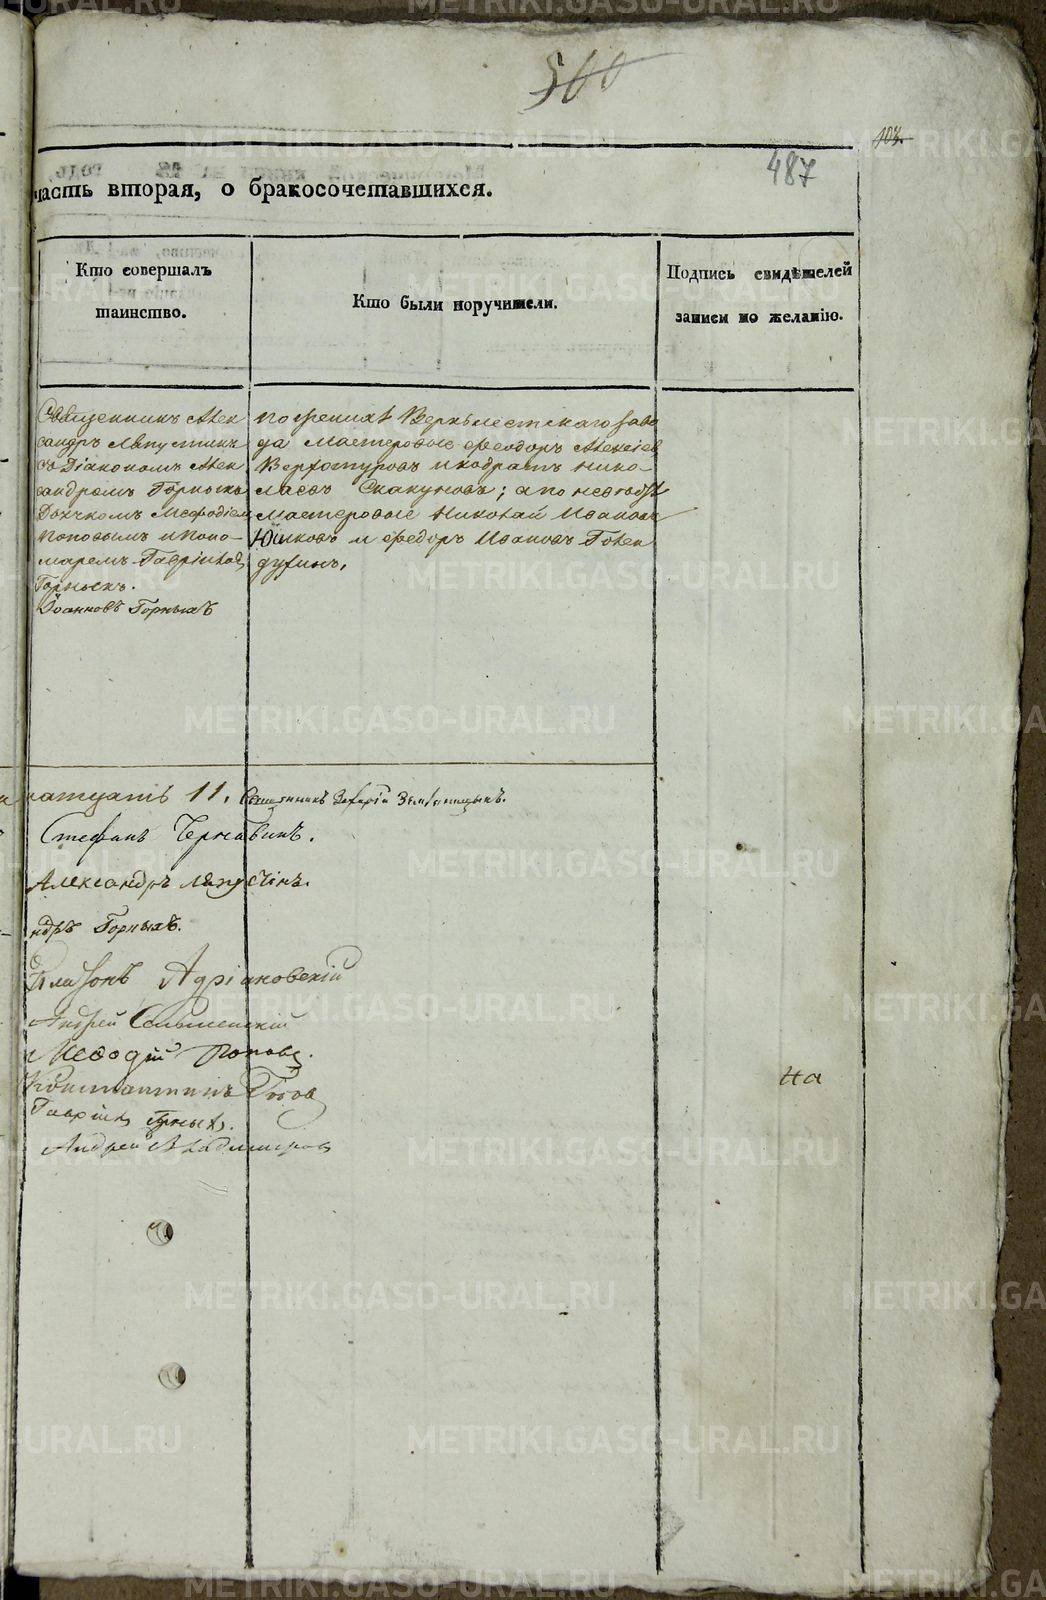 500
103.
487
часть вторая, о бракосочетавшихся.
Кто совершалъ
таинство.
Кто были поручители.
Подпись свидѣтелей
записи по желанію.
Священникъ Алек
сандръ Ляпустинъ
съ Діакономъ Алек
сандромъ Горныхъ
Дьячкомъ Меѳодіем
Поповымъ и Поно-
маремъ Гавріилом
Горныхъ.
Іоанновъ Горныхъ
по женихѣ Верхъ завo
да мастеровые Ѳеодоръ Алексіев
Верхотуровъ и кодратъ Нико-
лаевъ Скакуновъ; а по невѣстѣ
мастеровые Николай Ивановъ
Юшковъ и Ѳедоръ Ивановъ Голен
духинъ.
11. Священникъ Захарій
Стефанъ Чернавинъ.
Александръ Ляпустинъ.
ндръ Горныхъ.
Платонъ Адріановскій
Андрей
Меѳодій Поповъ.
Константинъ
Гавріилъ Горныхъ.
Андрей Владимировъ
На
METRIKI.GASO-URAL.RU